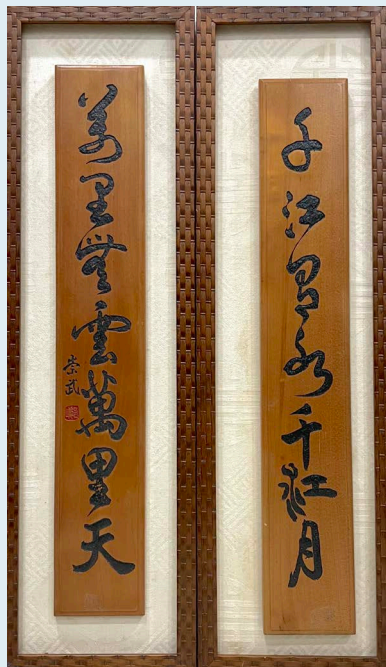 千江有水千江月
萬里無雲萬里天
崇武